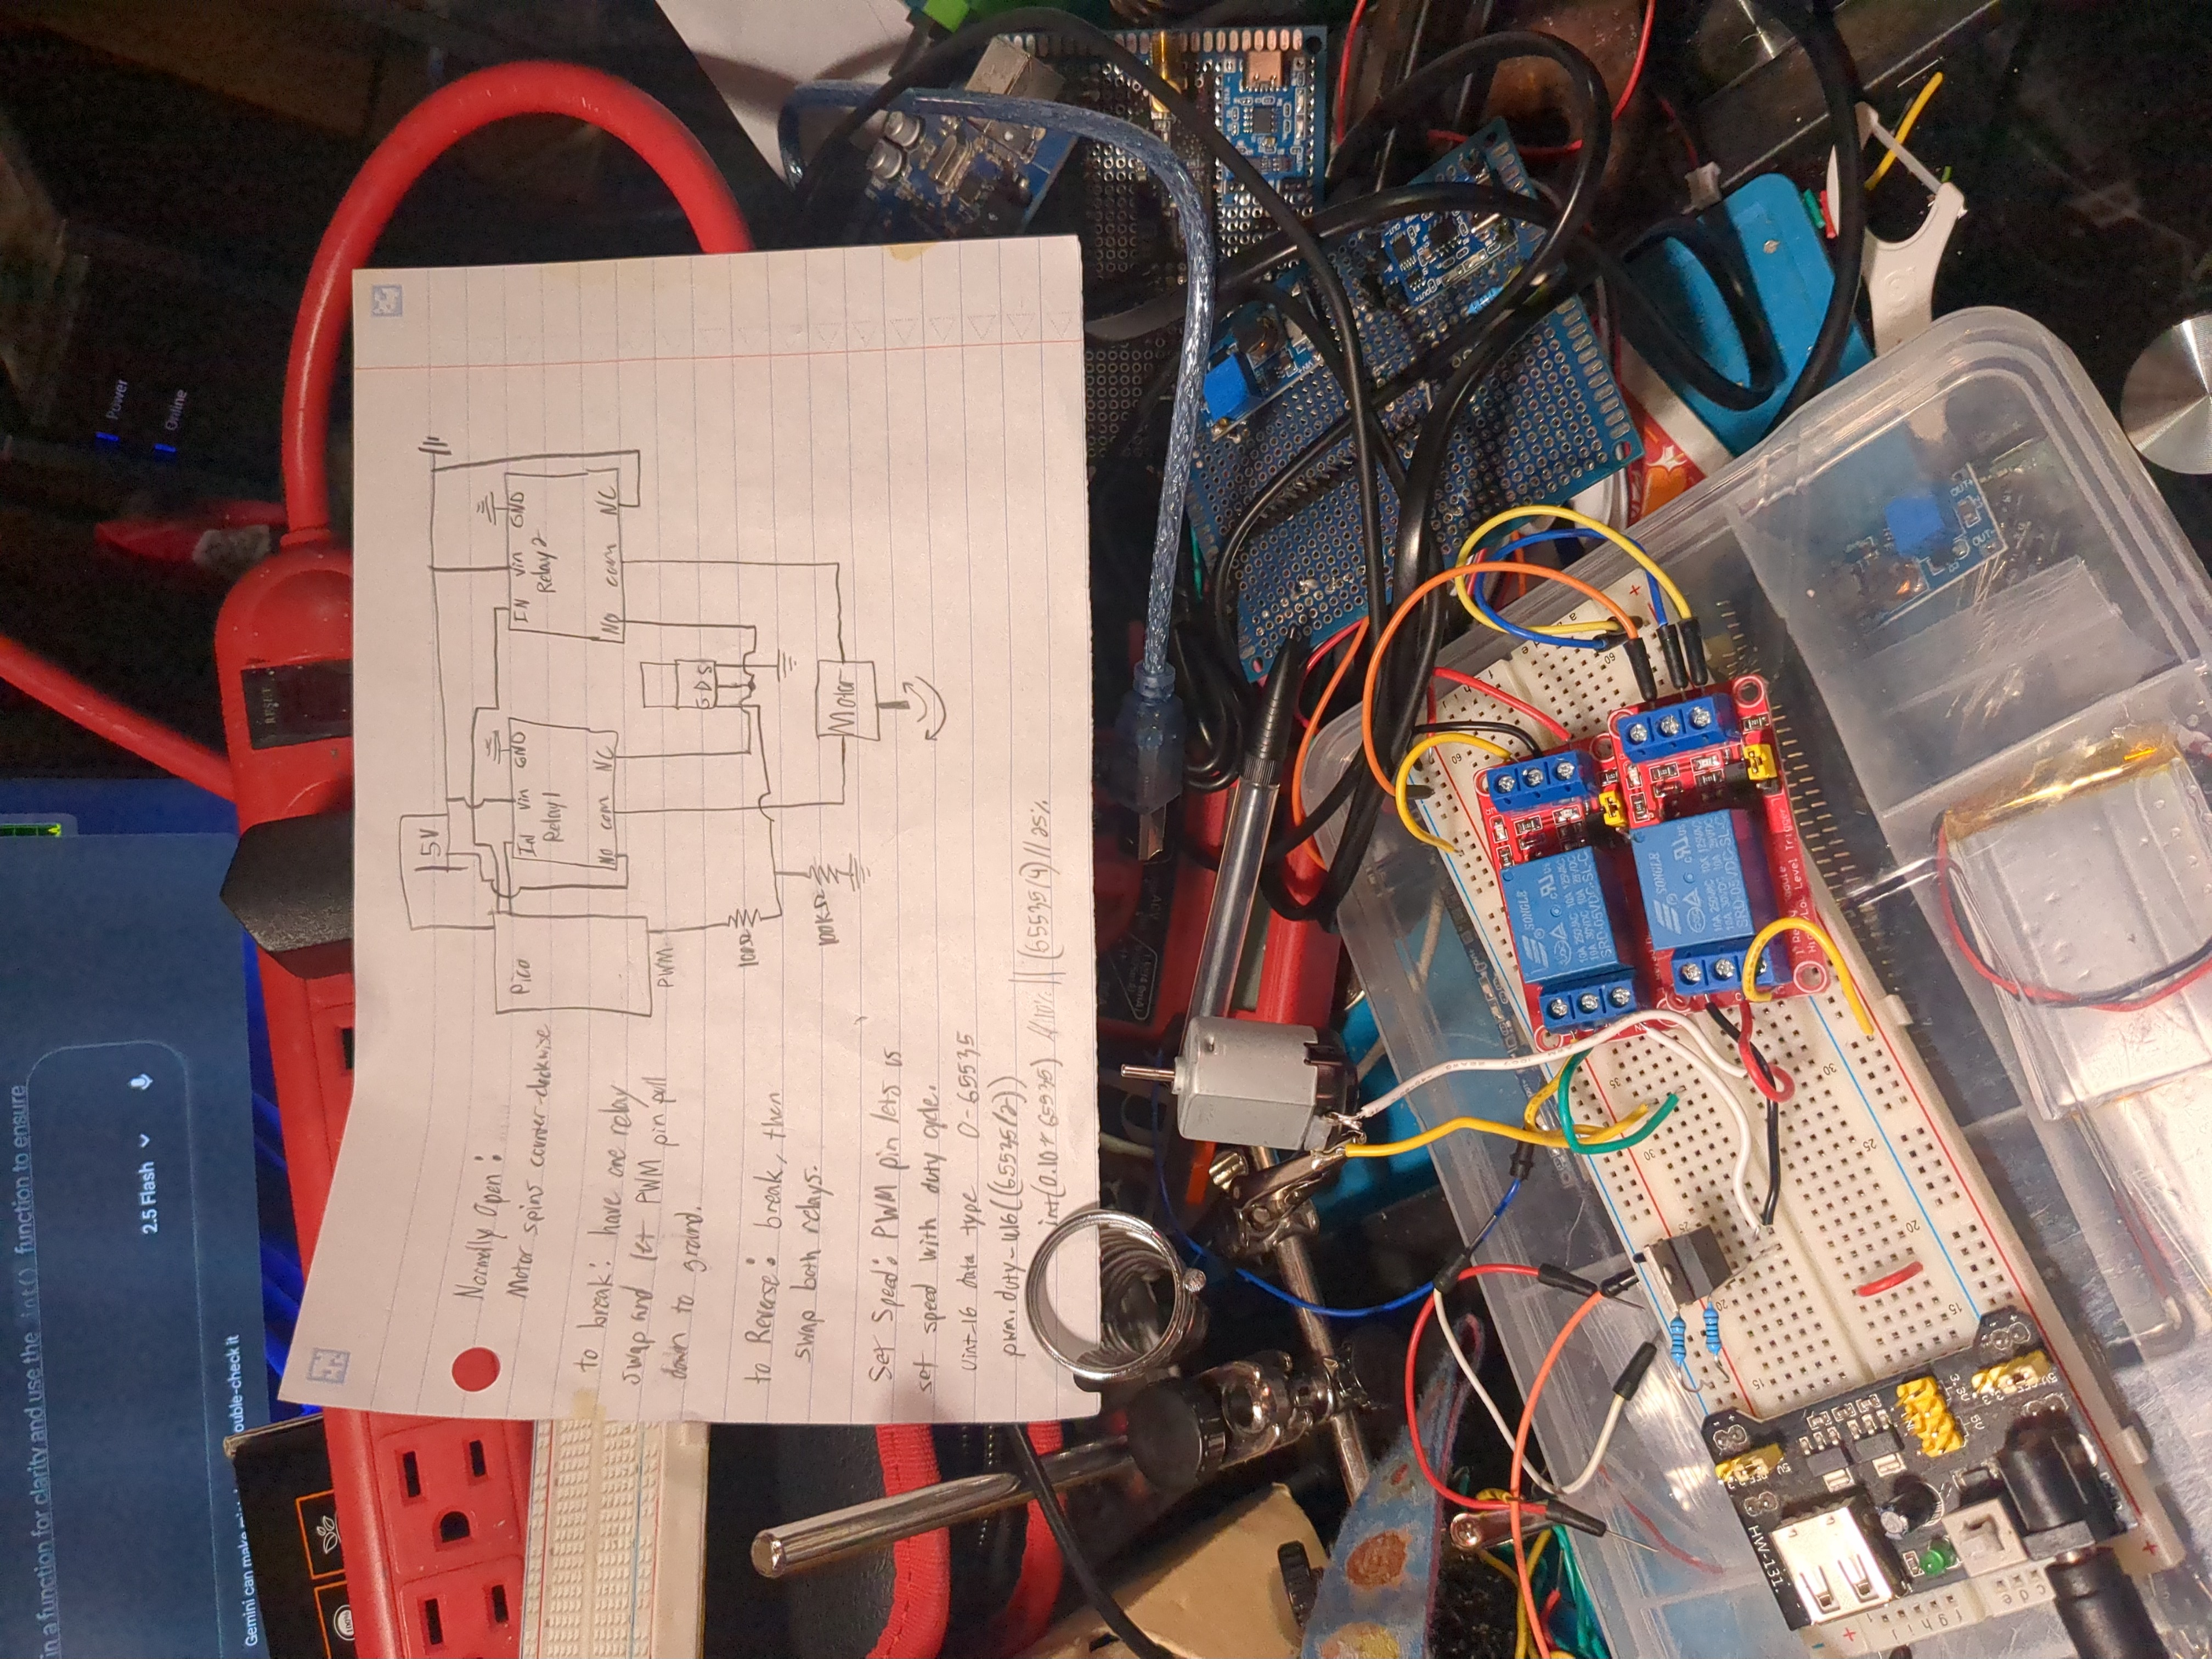 in a function for clarity and use the int() function to ensure
2.5 Flash
Gemini can make
ouble-check it
Power
Online
RESET
100%
Normally Open:
Motor spins counter-clockwise
to break: have one relay
swap and let PWM pin pull
down to ground.
to Reverse: break, then
swap both relays.
Set Speed: PWM pin lets us
set speed with duty cycle.
Uint-16 data type 0-65535
pwm.duty-u16((65535/2))
int(0.10* 65535) //10% || (65535/4)//25%
5V
Pico
PWM
IN Vin GND
Relay1
NO com NC
IN Vin GND
Relay 2
NO com NC
G D S
100Ω
100KΩ
Motor
SONGLE
10A 250VAC 10A 125VAC
10A 30VDC 10A 28VDC
SRD-05VDC-SL-C
SONGLE
10A 250VAC 10A 125VAC
10A 30VDC 10A 28VDC
SRD-05VDC-SL-C
1 Relay Module
High/Low Level Trigger
HW-131
5V
3.3V
35
30
25
20
15
60
60
30
25
20
15
OUT+
OUT-